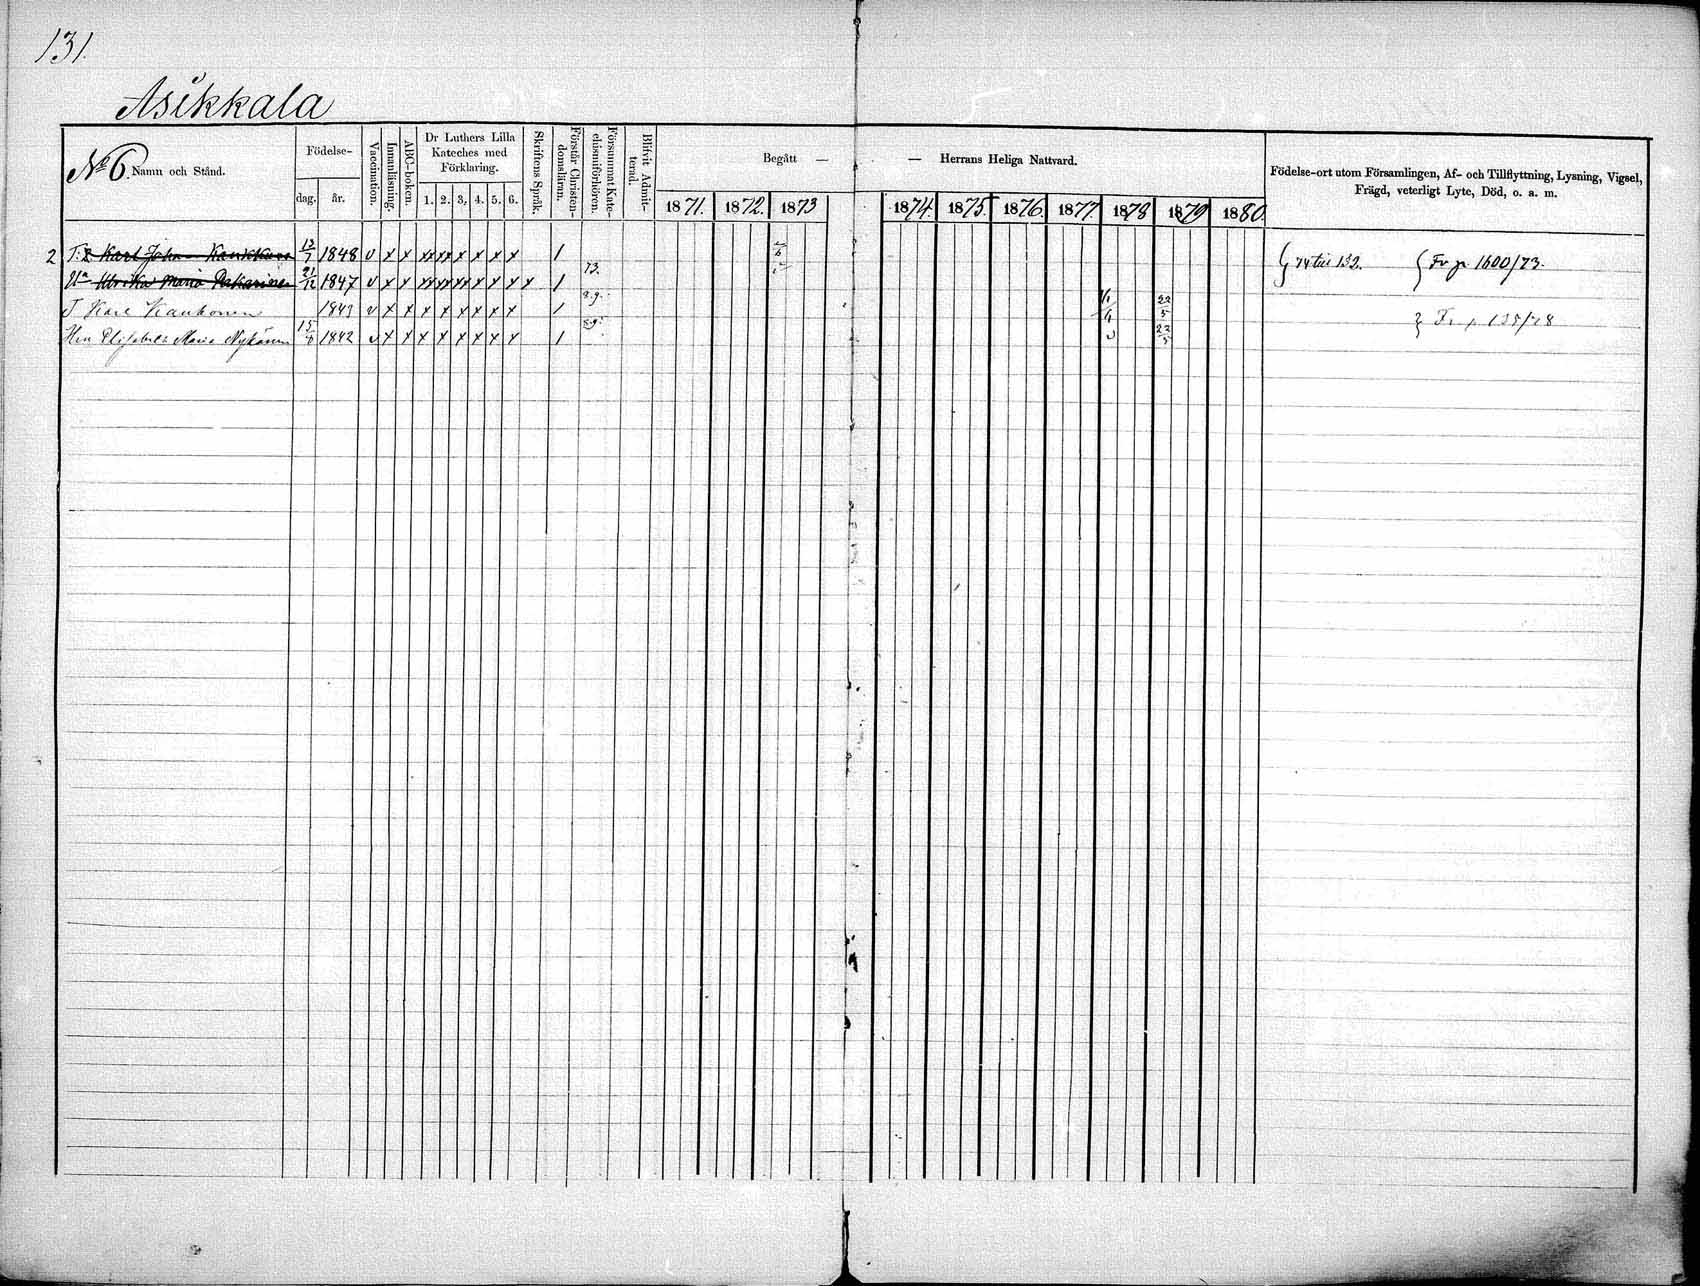 131.
Asikkala
No 6. Namn och Stånd.
Födelse-
dag. år.
Vaccination.
Innanläsning.
ABC-boken.
Dr Luthers Lilla
Kateches med
Förklaring.
1. 2. 3. 4. 5. 6.
Skriftens Språk.
Förstår Christen-
domsläran.
Försummat Kate-
chismiförhören.
Blifvit Admit-
terad.
Begått —
— Herrans Heliga Nattvard.
1871. 1872. 1873 1874. 1875. 1876. 1877. 1878 1879 1880.
Födelse-ort utom Församlingen, Af- och Tillflyttning, Lysning, Vigsel,
Frägd, veterligt Lyte, Död, o. a. m.
2 Karl Joh. 13/7 1848 v x x xx xx x x x x 1 74 till 132. Fr p 1600/73.
Ha Ulrika Maria Pakarinen 21/12 1847 v x x xx xx xx x x x x 1 73.
T Karl Kauhonen 1849 v x x x x x x x x 1 22/5 Fr p. 135/78
Hu Elisabeth Maria Nykänen 1842 v x x x x x x x x 1 v 22/5